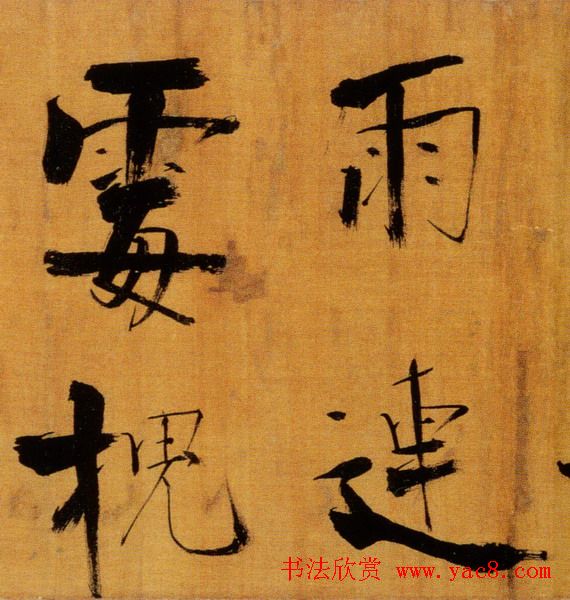 雨連
霉槐
书法欣赏 www.yac8.com